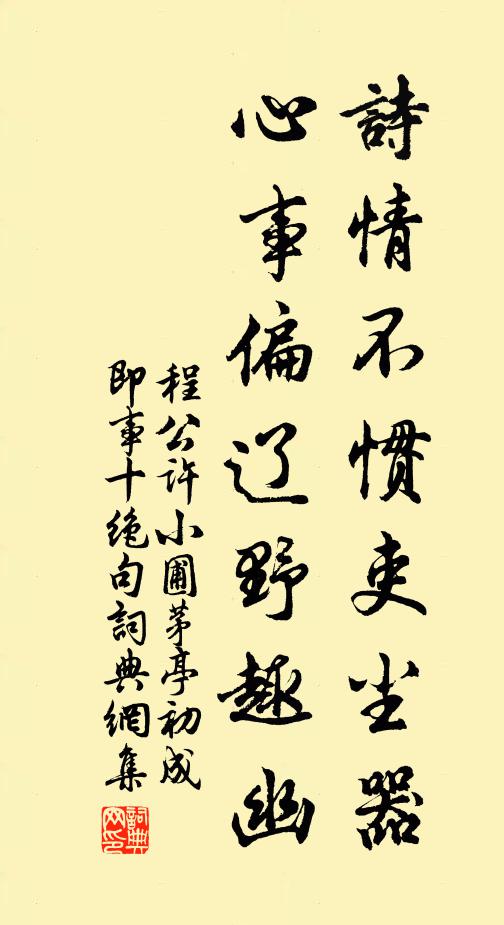 詩情不惯吏尘嚣
心事偏辽野趣幽
程公許小圃茅亭初成
即事十絶句詞典網集
詞典
网印